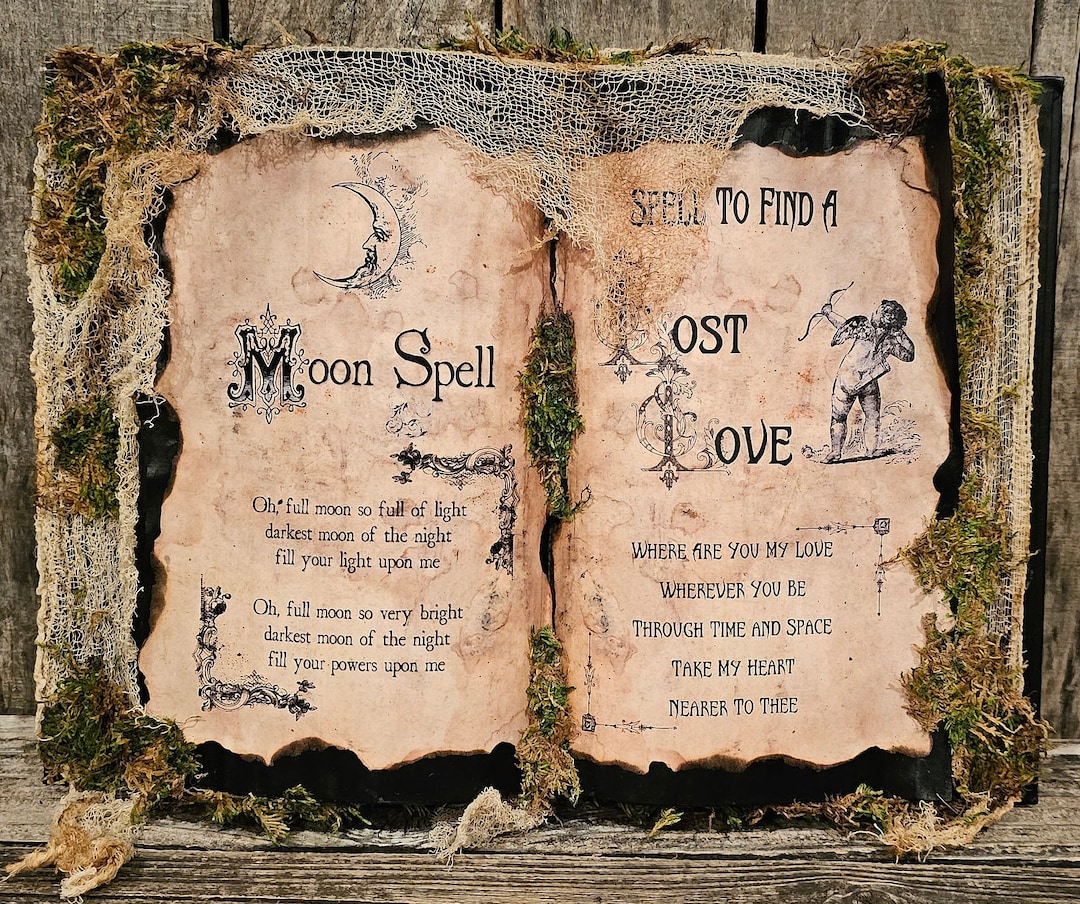 Moon Spell
Oh, full moon so full of light
darkest moon of the night
fill your light upon me
Oh, full moon so very bright
darkest moon of the night
fill your powers upon me
SPELL TO FIND A
LOST
LOVE
WHERE ARE YOU MY LOVE
WHEREVER YOU BE
THROUGH TIME AND SPACE
TAKE MY HEART
NEARER TO THEE